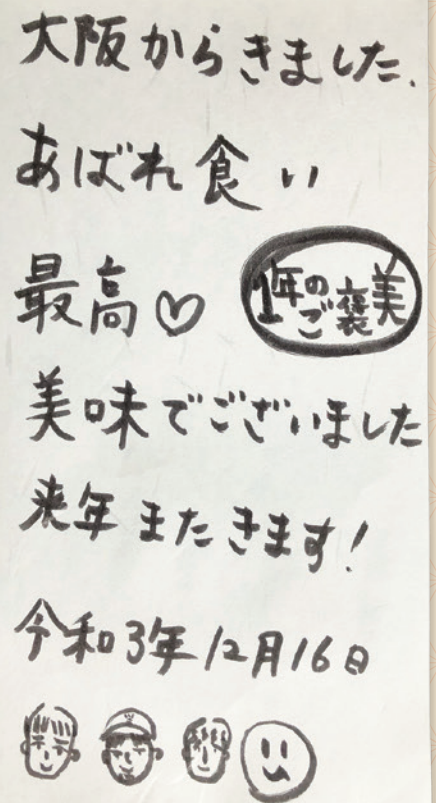 大阪からきました.
あばれ食い
最高♡
1年の
ご褒美
美味でございました
来年またきます!
令和3年12月16日